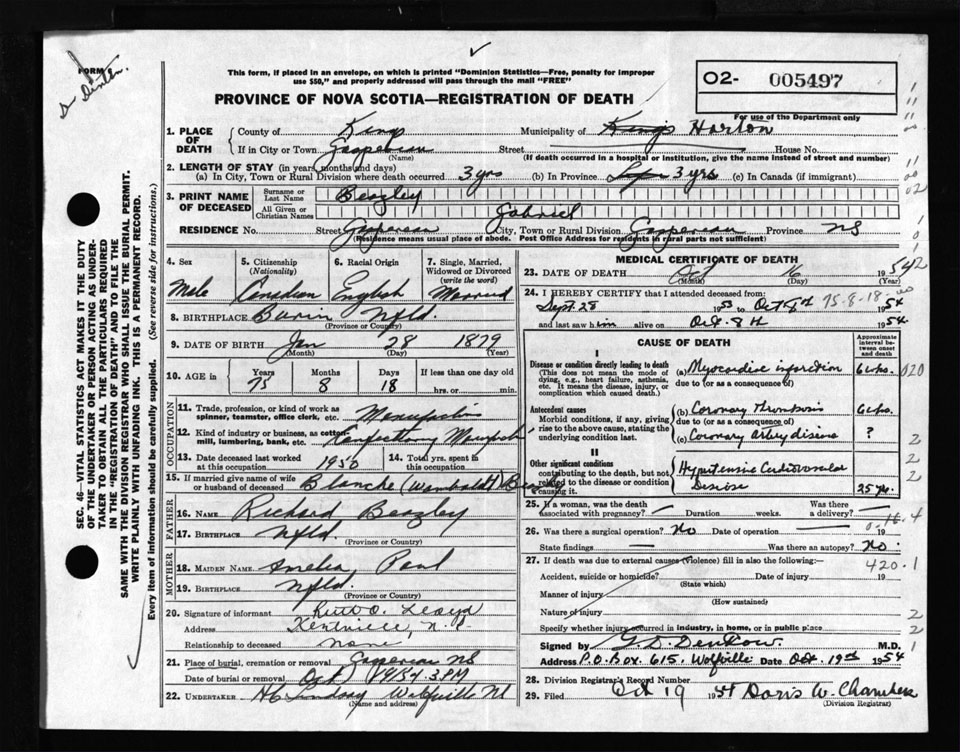 FORM
This form, if placed in an envelope, on which is printed "Dominion Statistics—Free, penalty for improper
use $50," and properly addressed will pass through the mail "FREE"
O2- 005497
For use of the Department only
PROVINCE OF NOVA SCOTIA—REGISTRATION OF DEATH
1. PLACE OF DEATH
County of Kings Municipality of Kings Horton
If in City or Town Gaspereau Street House No.
(Name) (If death occurred in a hospital or institution, give the name instead of street and number)
2. LENGTH OF STAY (in years, months and days)
(a) In City, Town or Rural Division where death occurred 3 yrs (b) In Province 3 yrs (c) In Canada (if immigrant)
3. PRINT NAME OF DECEASED
Surname or Last Name Beazley
All Given or Christian Names Gabriel
RESIDENCE No. Street Gaspereau City, Town or Rural Division Gaspereau Province NS
(Residence means usual place of abode. Post Office Address for residents in rural parts not sufficient)
4. Sex Male
5. Citizenship (Nationality) Canadian
6. Racial Origin English
7. Single, Married, Widowed or Divorced (write the word) Married
8. BIRTHPLACE Burin Nfld.
(Province or Country)
9. DATE OF BIRTH Jan 28 1879
(Month) (Day) (Year)
10. AGE in Years 75 Months 8 Days 18 If less than one day old
hrs. or min.
OCCUPATION
11. Trade, profession, or kind of work as
spinner, teamster, office clerk, etc.
12. Kind of industry or business, as cotton-
mill, lumbering, bank, etc. Confectionery
13. Date deceased last worked
at this occupation 1950
14. Total yrs. spent in
this occupation
15. If married give name of wife
or husband of deceased Blanche (Wamboldt) Beazley
FATHER
16. Name Richard Beazley
17. BIRTHPLACE Nfld.
(Province or Country)
MOTHER
18. MAIDEN NAME Amelia Paul
19. BIRTHPLACE Nfld.
(Province or Country)
20. Signature of informant Lloyd
Address Kentville, N.S.
Relationship to deceased none
21. Place of burial, cremation or removal Gaspereau NS
Date of burial or removal Oct 19/54 3 PM
22. UNDERTAKER H C Lindsay Wolfville NS
(Name and address)
MEDICAL CERTIFICATE OF DEATH
23. DATE OF DEATH Oct 16 1954
(Month) (Day)
24. I HEREBY CERTIFY that I attended deceased from
Sept 28 1953 to Oct 8th 75-8-18 1954
and last saw him alive on Oct. 8th 1954.
CAUSE OF DEATH
Approximate interval between onset and death
I
Disease or condition directly leading to death
(This does not mean the mode of
dying, e.g., heart failure, asthenia,
etc. It means the disease, injury, or
complication which caused death.)
(a) Myocardial infarction 6 wks.
due to (or as a consequence of)
Antecedent causes
Morbid conditions, if any, giving
rise to the above cause, stating the
underlying condition last.
(b) Coronary Thrombosis 6 wks.
due to (or as a consequence of)
(c) Coronary artery disease ?
II
Other significant conditions
contributing to the death, but not
related to the disease or condition
causing it.
Hypertensive Cardiovascular
Disease 25 yrs.
25. If a woman, was the death
associated with pregnancy? Duration weeks. Was there
a delivery?
26. Was there a surgical operation? No Date of operation 19
State findings Was there an autopsy? No.
27. If death was due to external causes (Violence) fill in also the following:
420.1
Accident, suicide or homicide? Date of injury 19
(State which)
Manner of injury
(How sustained)
Nature of injury
Specify whether injury occurred in industry, in home, or in public place
Signed by G. D. Denton M.D.
Address P.O. Box 615, Wolfville Date Oct. 19th 1954
28. Division Registrar's Record Number
29. Filed Oct 19 1954 Doris W. Chambers
(Division Registrar)
SEC. 46—VITAL STATISTICS ACT MAKES IT THE DUTY
OF THE UNDERTAKER OR PERSON ACTING AS UNDER-
TAKER TO OBTAIN ALL THE PARTICULARS REQUIRED
IN THE "REGISTRATION OF DEATH" AND TO FILE THE
SAME WITH THE DIVISION REGISTRAR WHO SHALL ISSUE THE BURIAL PERMIT.
WRITE PLAINLY WITH UNFADING INK. THIS IS A PERMANENT RECORD.
Every item of information should be carefully supplied. (See reverse side for instructions.)